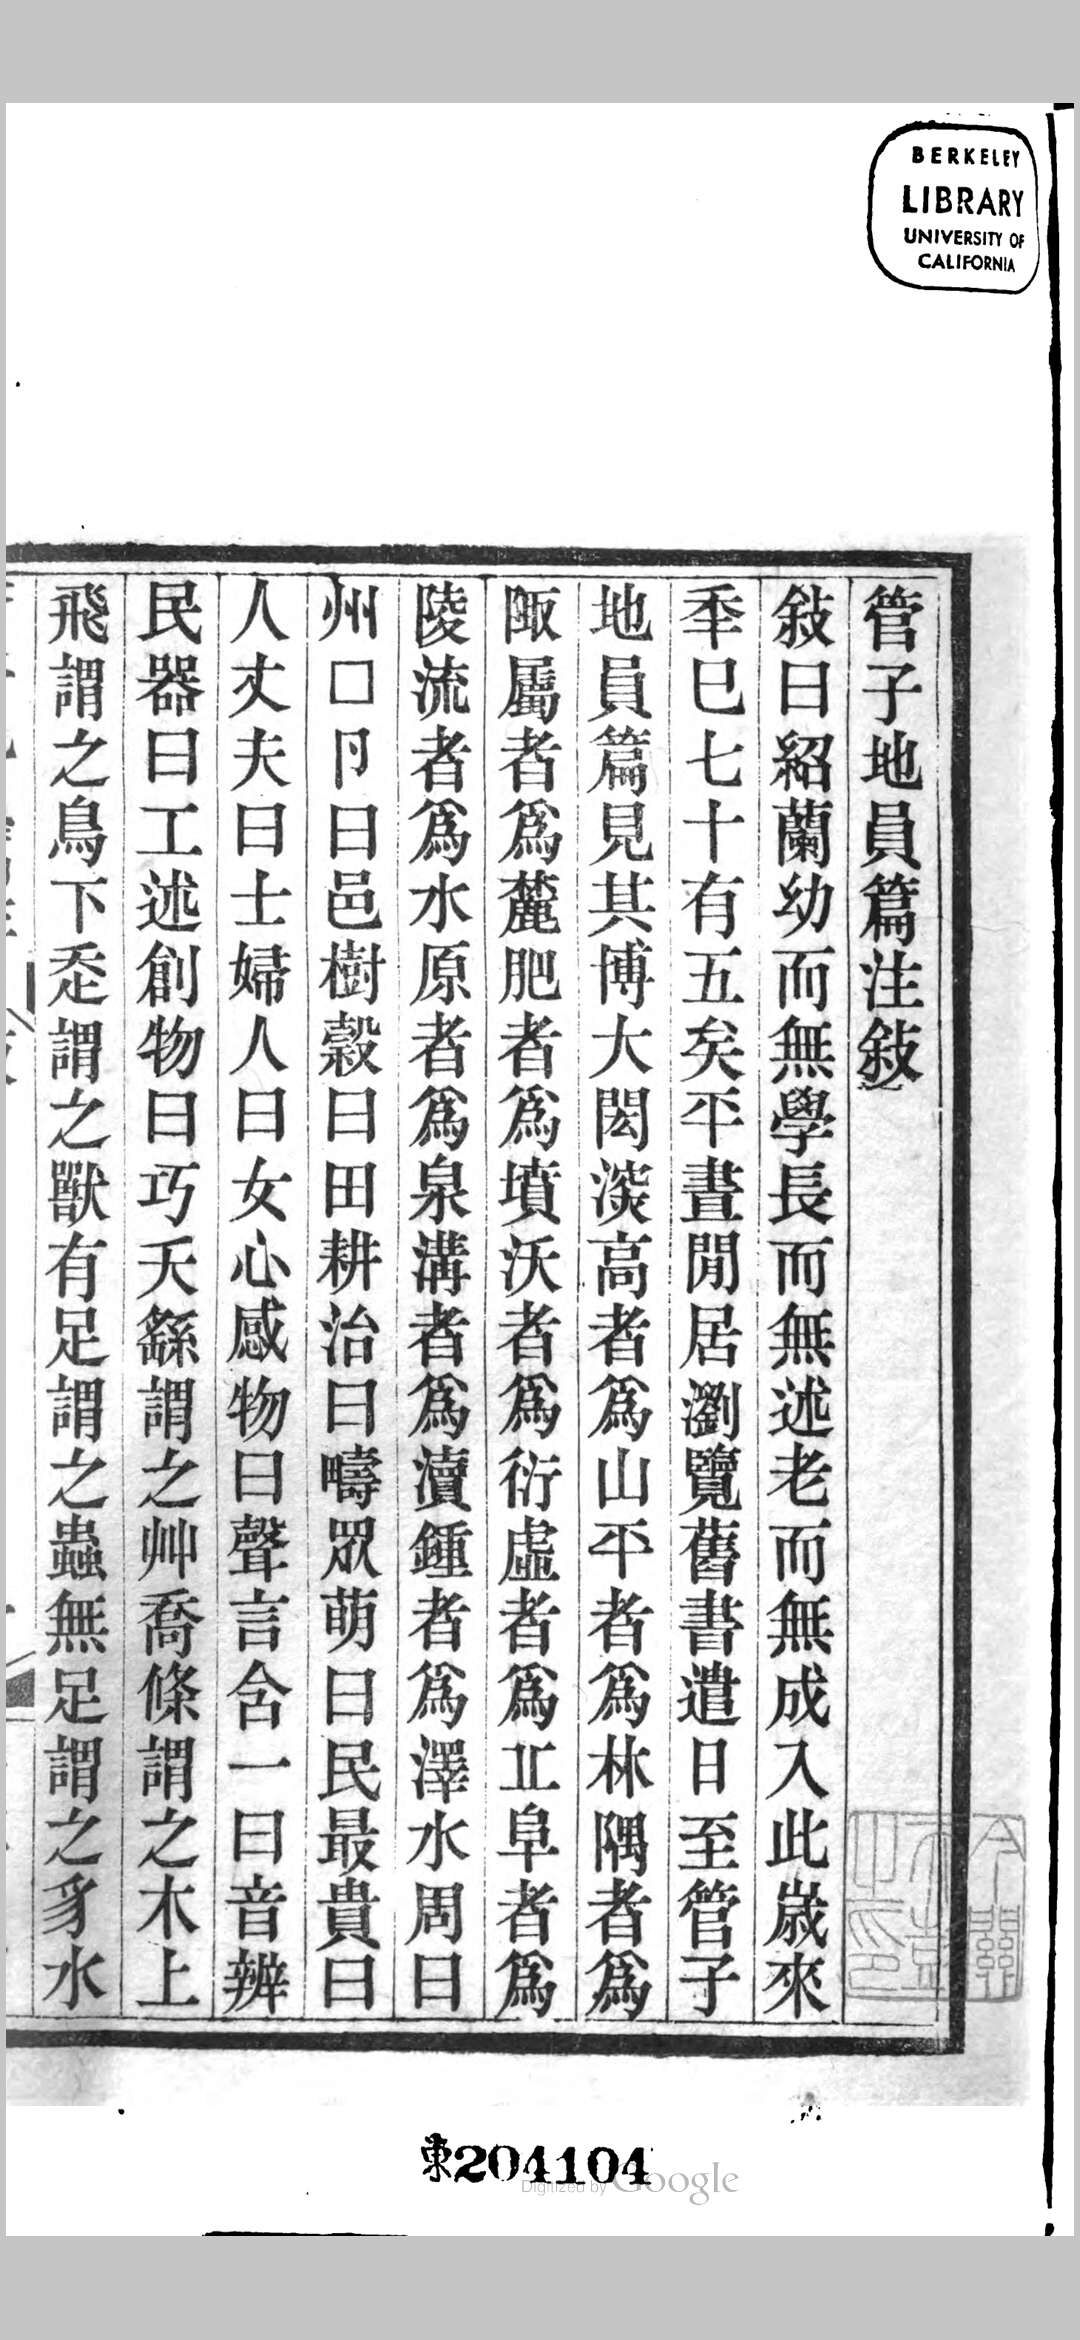 BERKELEY
LIBRARY
UNIVERSITY OF
CALIFORNIA
管子地員篇注敍
敍曰紹蘭幼而無學長而無述老而無成入此歲來
秊巳七十有五矣平晝閒居瀏覽舊書遣日至管子
地員篇見其博大閎深高者爲山平者爲林隅者爲
陬屬者爲麓肥者爲墳沃者爲衍虛者爲丠阜者爲
陵流者爲水原者爲泉溝者爲瀆鍾者爲澤水周曰
州囗卪曰邑樹穀曰田耕治曰疇眾萌曰民最貴曰
人丈夫曰士婦人曰女心感物曰聲言含一曰音辨
民器曰工述創物曰巧夭繇謂之艸喬條謂之木上
飛謂之鳥下走謂之獸有足謂之蟲無足謂之豸水
東204104
Digitized by Google